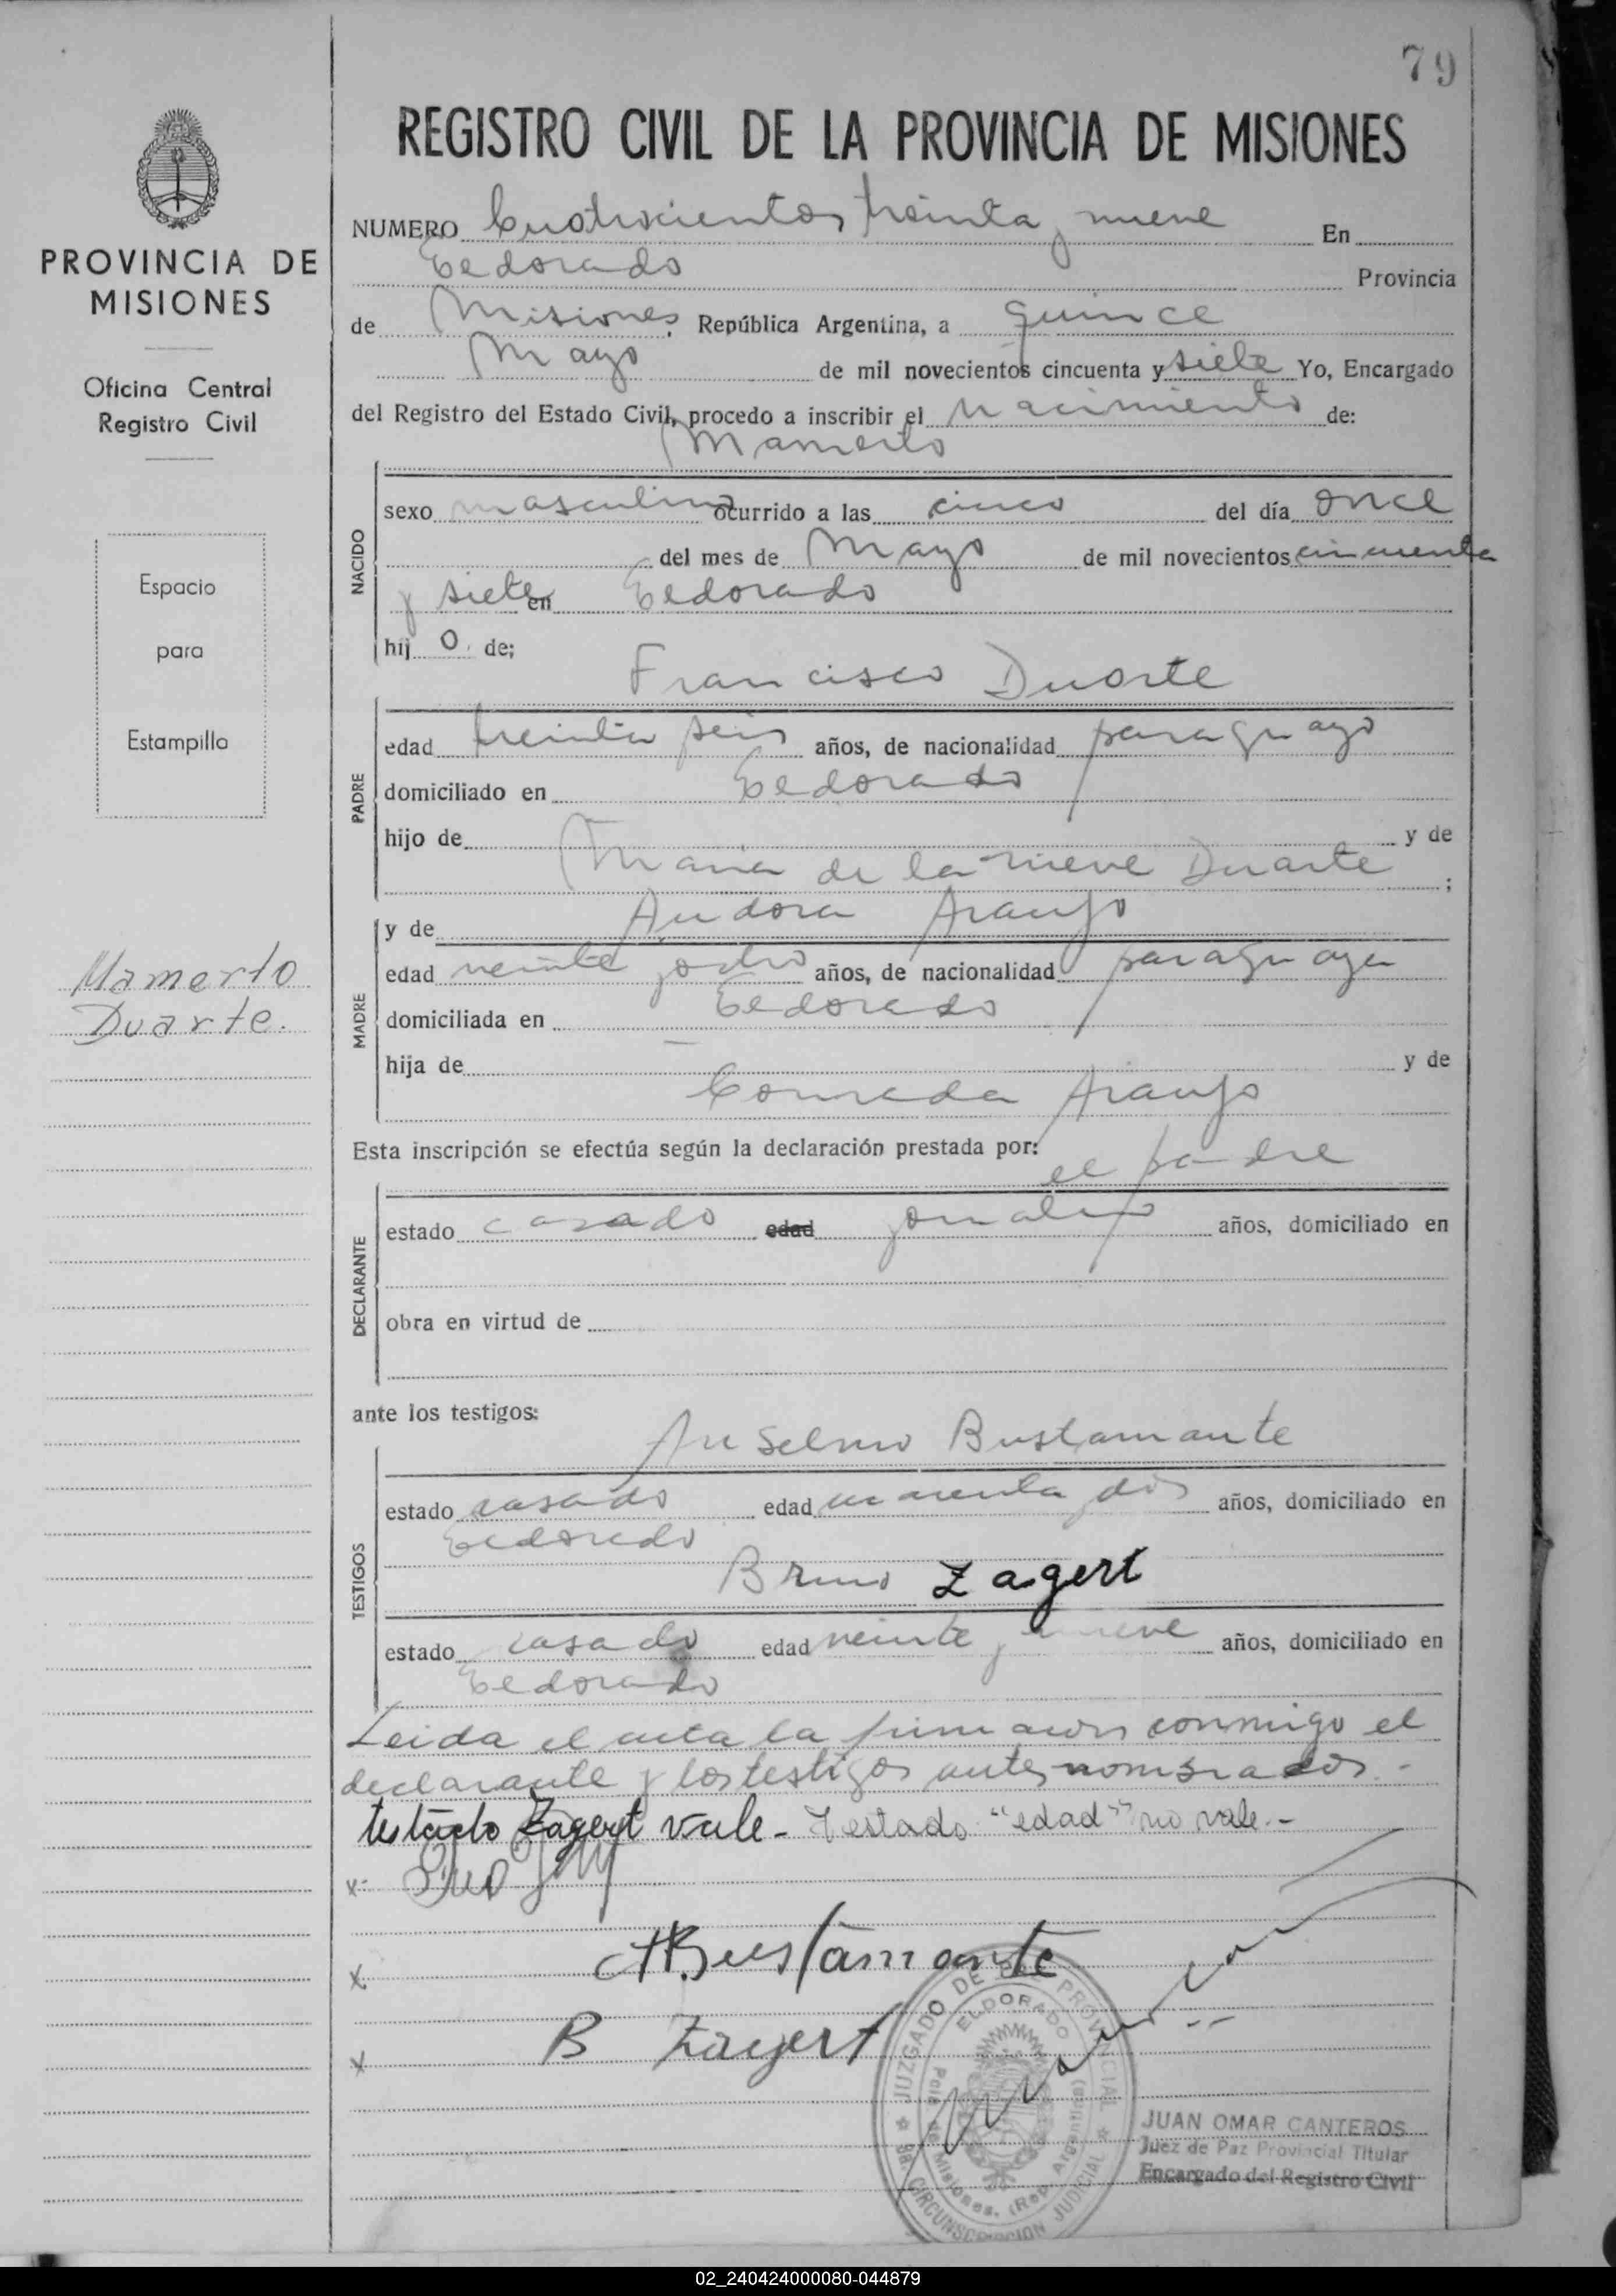 79
REGISTRO CIVIL DE LA PROVINCIA DE MISIONES
NUMERO Cuatrocientos treinta y nueve En
Eldorado Provincia
de Misiones, República Argentina, a quince
Mayo de mil novecientos cincuenta y siete Yo, Encargado
del Registro del Estado Civil, procedo a inscribir el nacimiento de:
Mamerto
NACIDO
sexo masculino ocurrido a las cinco del día once
del mes de Mayo de mil novecientos cincuenta
y siete en Eldorado
hij o de;
Francisco Duarte
PADRE
edad treinta seis años, de nacionalidad paraguayo
domiciliado en Eldorado
hijo de y de
Maria de la nieve Duarte ;
MADRE
y de Araujo
edad veinte años, de nacionalidad paraguaya
domiciliada en Eldorado
hija de y de
Conrada Araujo
Esta inscripción se efectúa según la declaración prestada por:
el padre
DECLARANTE
estado casado edad años, domiciliado en
obra en virtud de
ante los testigos:
Anselmo Bustamante
TESTIGOS
estado casado edad cuarenta dos años, domiciliado en
Eldorado
Bruno Zagert
estado casado edad veinte y nueve años, domiciliado en
Eldorado
Leida el acta la firmaron conmigo el
declarante y los testigos antes nombrados.-
testado Zagert vale- Testado "edad" no vale.-
x-
x. ABustamante
x B Zagert
JUZGADO DE PAZ PROVINCIAL
ELDORADO
Pcia de Misiones, (Rep. Argentina)
CIRCUNSCRIPCION JUDICIAL
JUAN OMAR CANTEROS
Juez de Paz Provincial Titular
Encargado del Registro Civil
PROVINCIA DE
MISIONES
Oficina Central
Registro Civil
Espacio
para
Estampilla
Mamerto
Duarte.
02_240424000080-044879